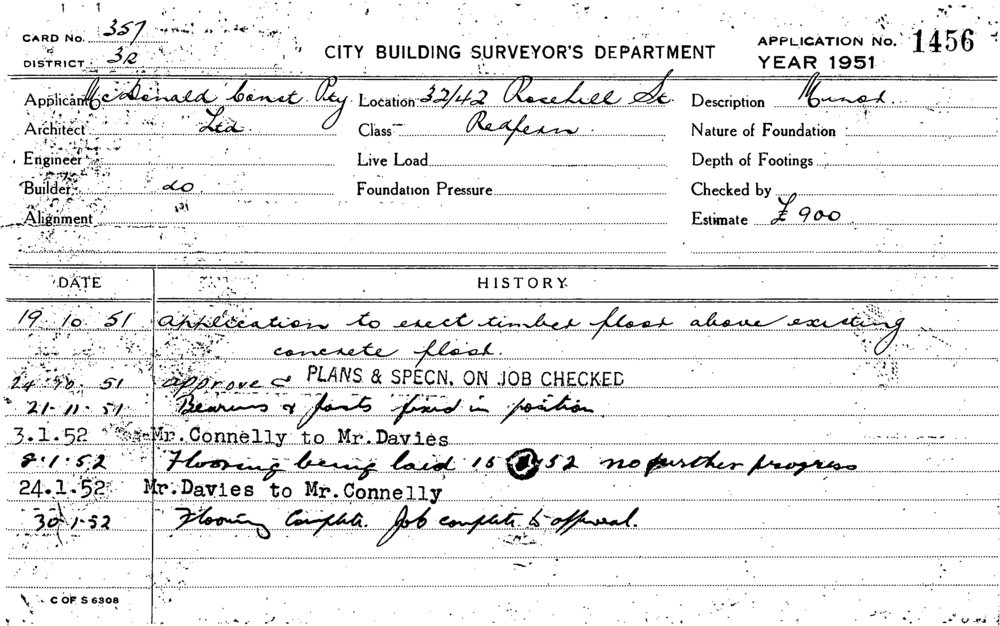 CARD No. 357
DISTRICT 3R
CITY BUILDING SURVEYOR'S DEPARTMENT
APPLICATION No. 1456
YEAR 1951
Applicant McDonald Const. Pty Location 32/42 Rosehill St. Description Minor.
Architect Ltd Class Redfern Nature of Foundation
Engineer Live Load Depth of Footings
Builder do Foundation Pressure Checked by
Alignment Estimate £ 900
DATE HISTORY
19 10 51 Application to erect timber floor above existing
concrete floor.
24 10 51 approved PLANS & SPECN. ON JOB CHECKED
21-11-51 Bearers & joists fixed in position
3.1.52 Mr.Connelly to Mr.Davies
8.1.52 Flooring being laid 15 1 52 no further progress
24.1.52 Mr.Davies to Mr.Connelly
30-1-52 Flooring Complete. Job complete to approval.
C OF S 6308